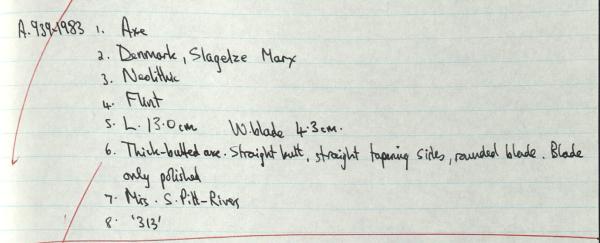 A.939.1983 1. Axe
2. Denmark, Slagelze Marx
3. Neolithic
4. Flint
5. L. 13.0cm W.blade 4.3cm.
6. Thick-butted axe. Straight butt, straight tapering sides, rounded blade. Blade
only polished
7. Mrs. S. Pitt-Rivers
8. '313'